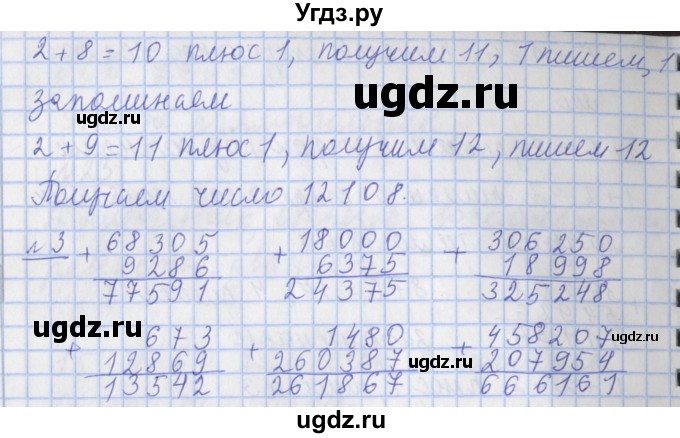 Угдз.ру
2 + 8 = 10 плюс 1, получим 11, 1 пишем, 1
запоминаем
ugdz.ru ugdz.ru
2 + 9 = 11 плюс 1, получим 12, пишем 12
Получаем число 12108.
ugdz.ru
№3 + 68305 + 18000 + 306250
9286 6375 18998
77591 24375 325248
ugdz.ru
+ 673 + 1480 + 458207
12869 260387 207954
13542 261867 666161
ugdz.ru ugdz.ru
ugdz.ru